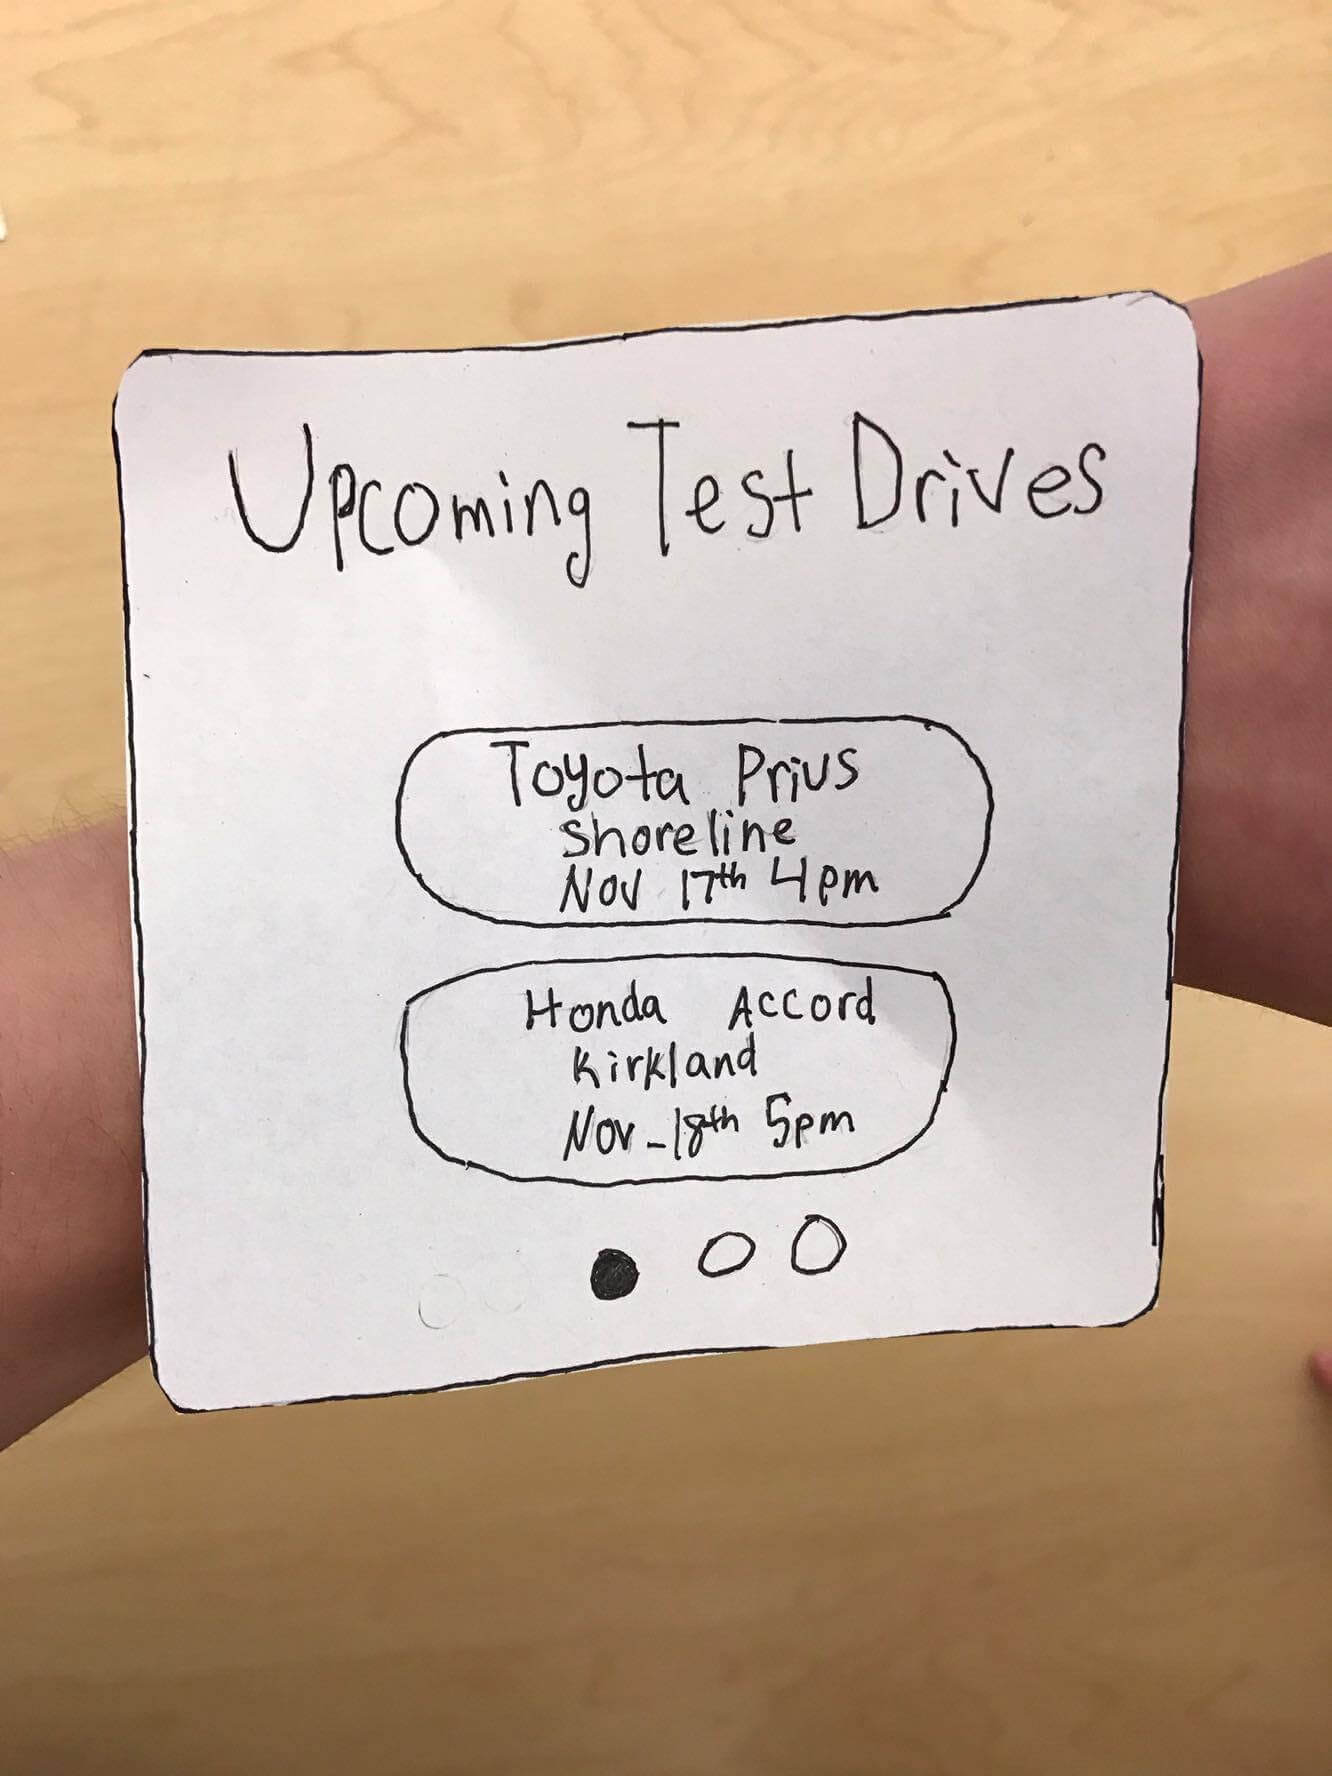 Upcoming Test Drives
Toyota Prius
Shoreline
Nov 17th 4pm
Honda Accord
Kirkland
Nov-18th 5pm